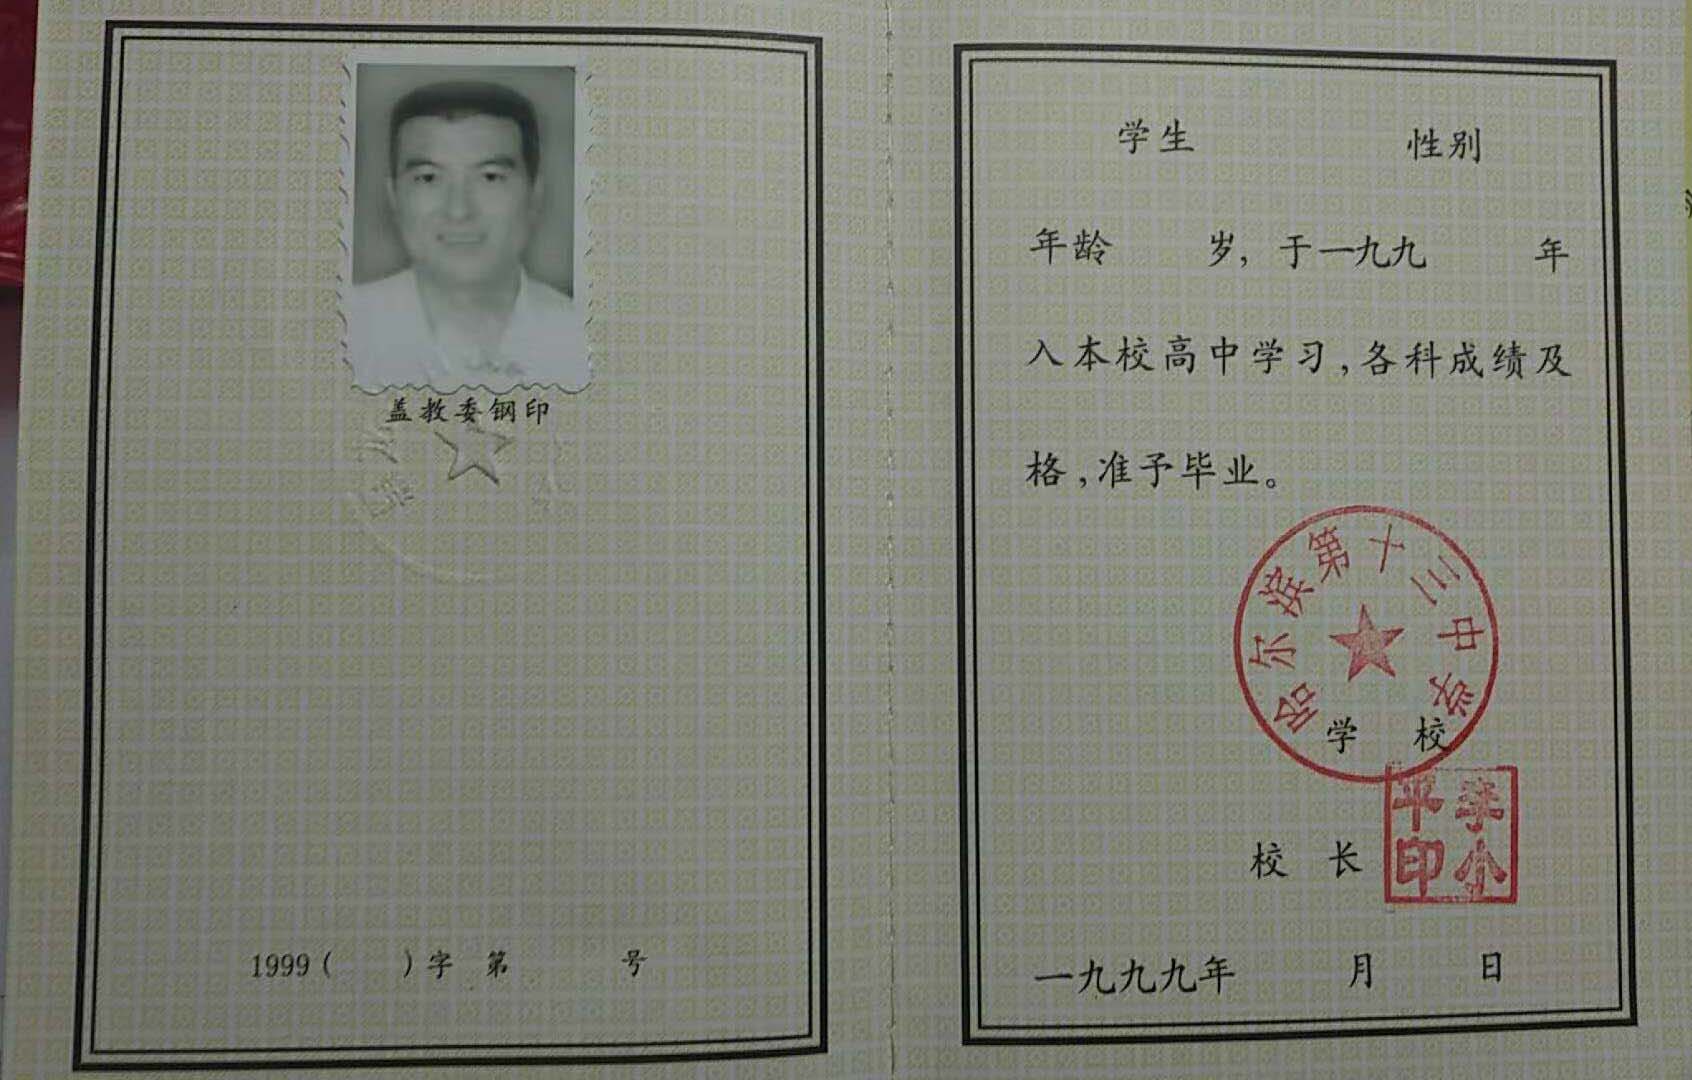 盖教委钢印
1999（ ）字 第 号
学生 性别
年龄 岁，于一九九 年
入本校高中学习，各科成绩及
格，准予毕业。
哈尔滨第十三中学
学 校
校 长
李小平印
一九九九年 月 日